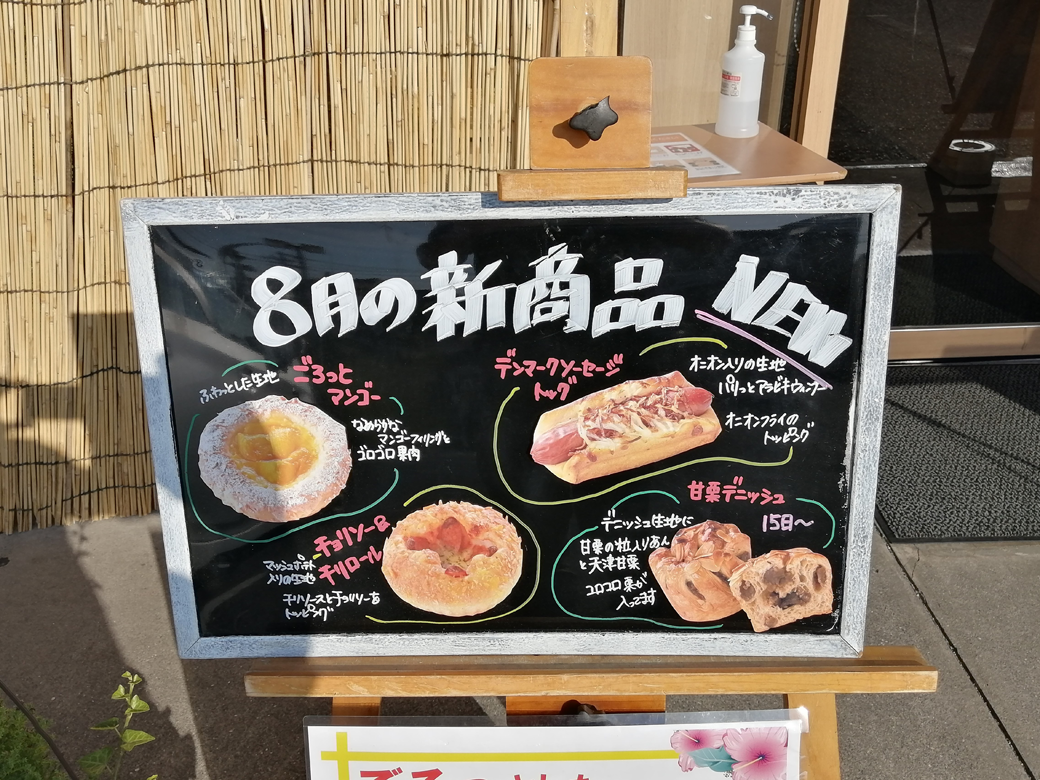 8月の新商品
NEW
ふわっとした生地
ごろっと
マンゴー
なめらかな
マンゴーフィリングと
ゴロゴロ果肉
デンマークソーセージ
ドッグ
オニオン入りの生地
パリっとアラビキウィンナー
オニオンフライの
トッピング
チョリソー&
チリロール
マッシュポテト
入りの生地
チリソースとチョリソーを
トッピング
甘栗デニッシュ
15日〜
デニッシュ生地に
甘栗の粒入りあん
と天津甘栗
コロコロ栗が
入ってます